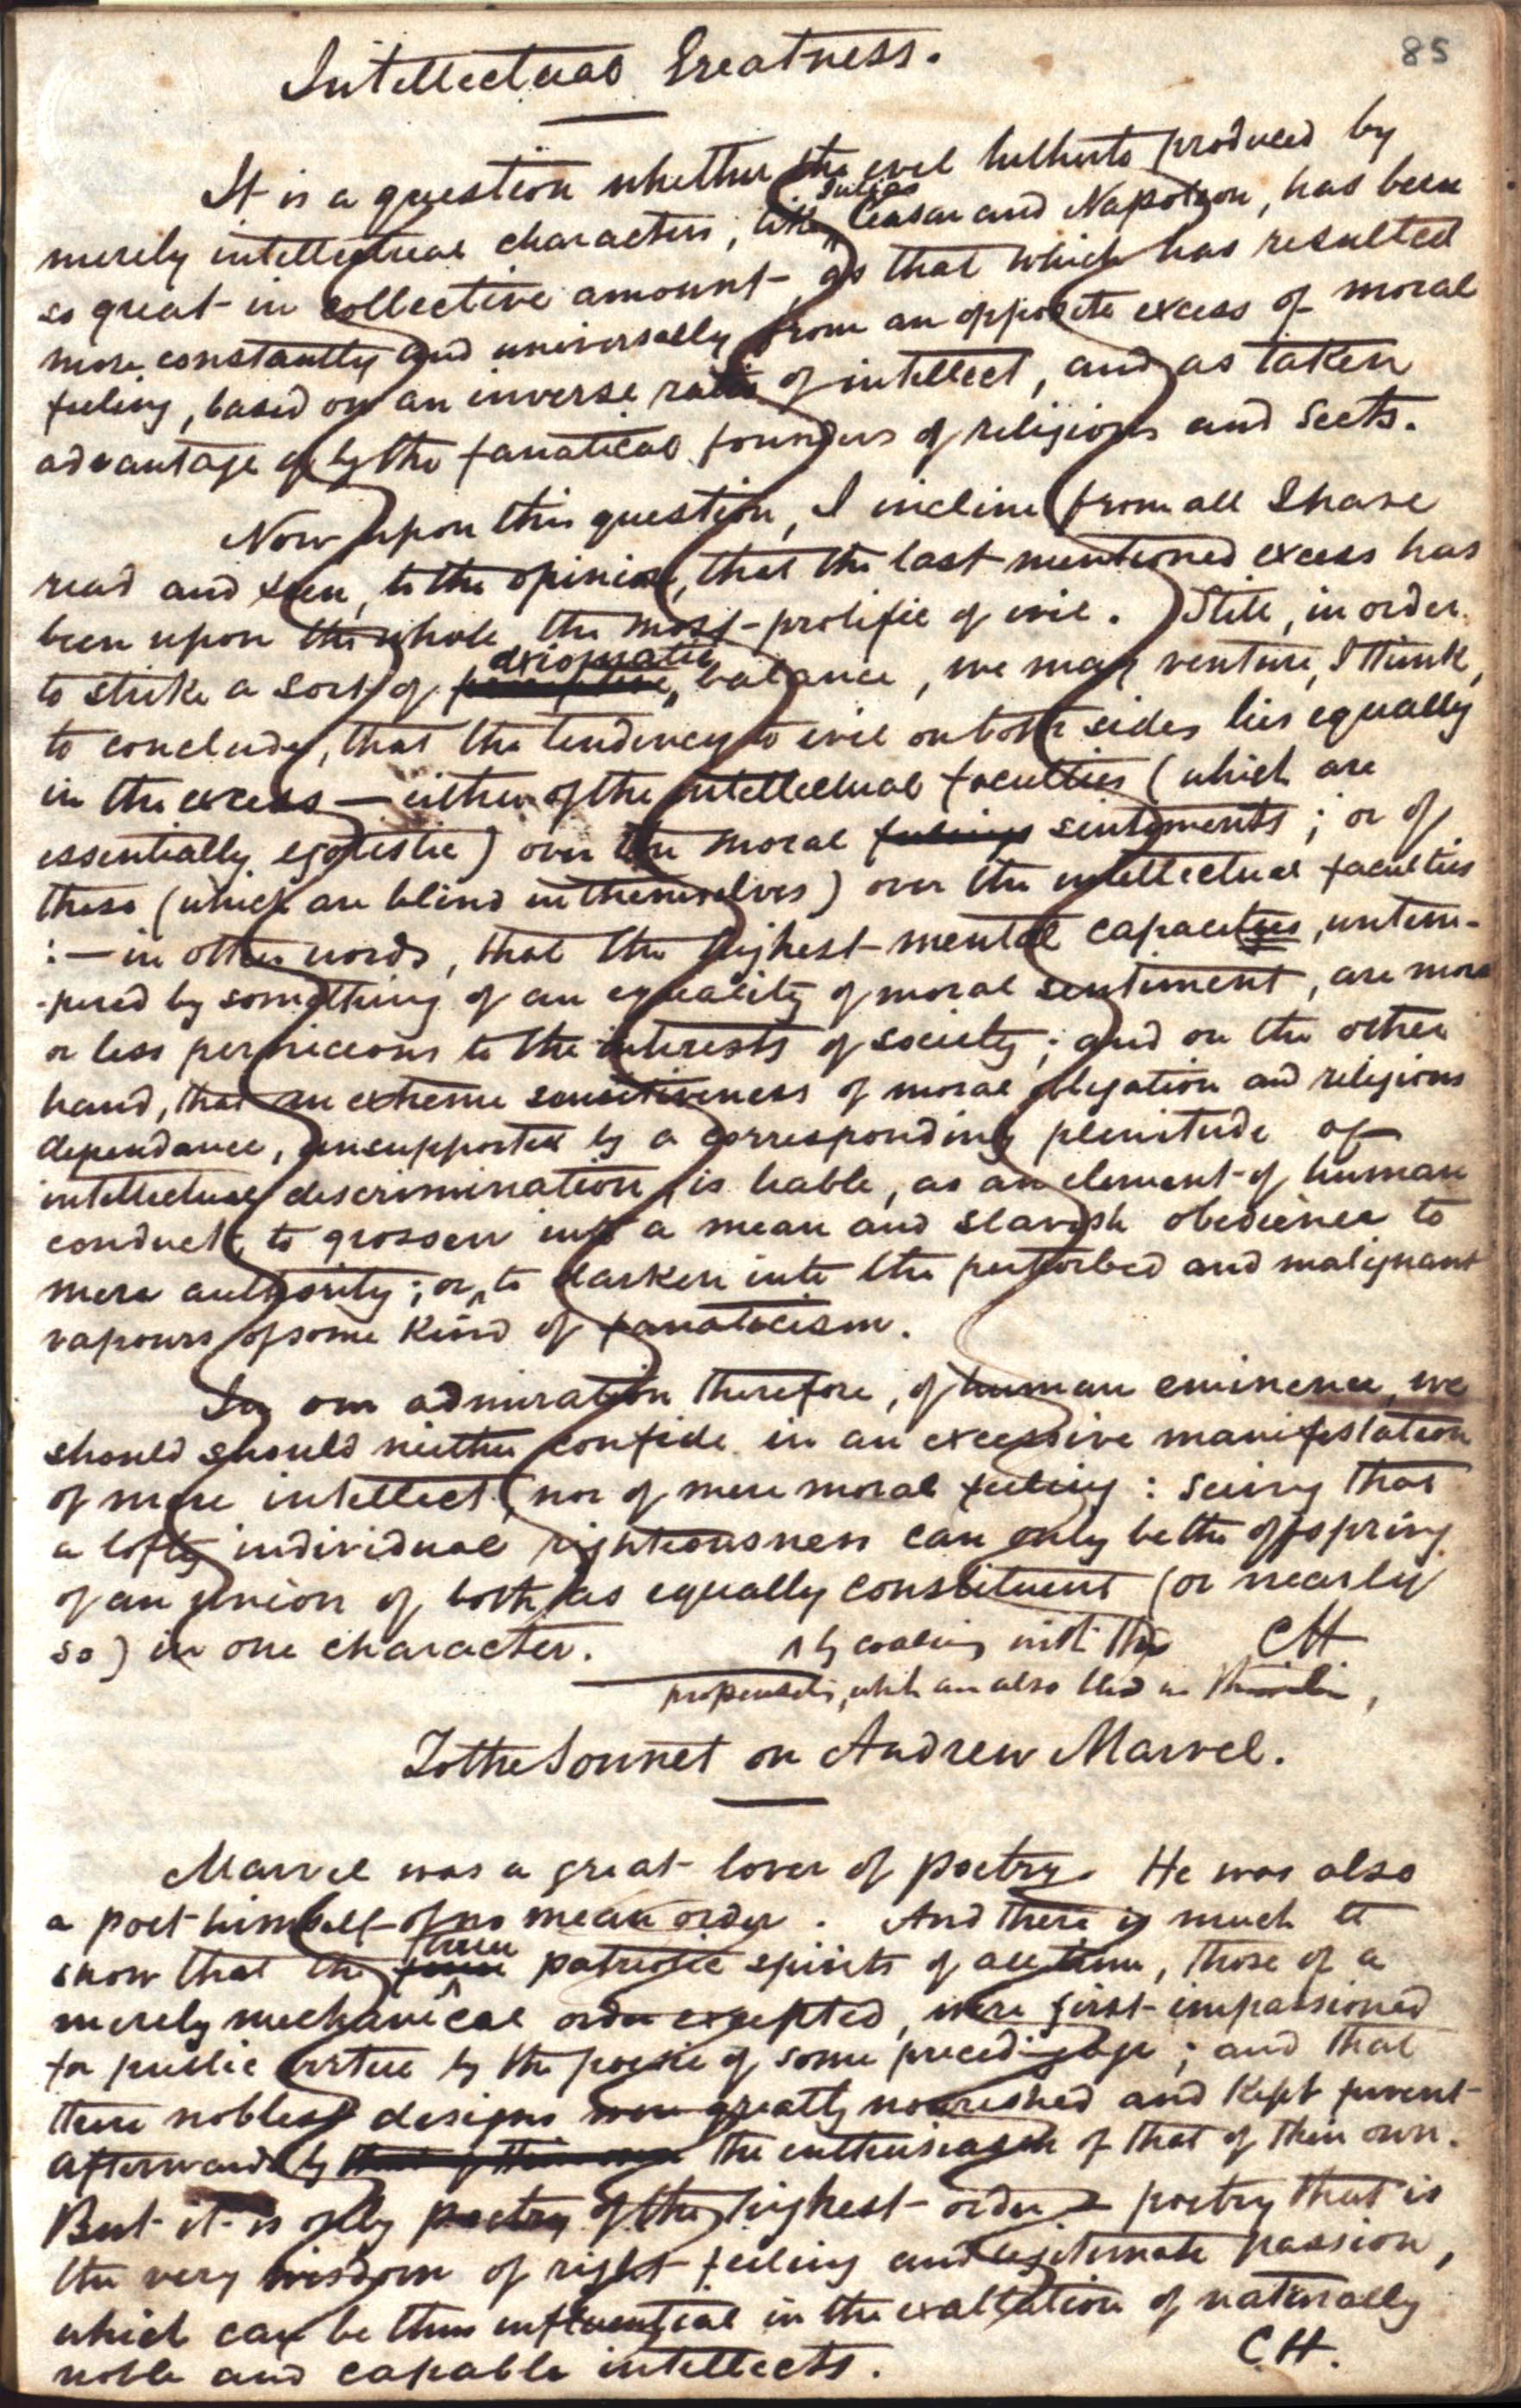 85
Intellectual Greatness.
It is a question whether the evil hitherto produced by
merely intellectual characters, like Julius Ceasar and Napoleon, has been
so great in collective amount, as that which has resulted
more constantly and universally from an opposite excess of moral
feeling, based on an inverse ratio of intellect, and as taken
advantage of by the fanatical founders of religions and sects.
Now upon this question, I incline from all I have
read and seen, to the opinion, that the last mentioned excess has
been upon the whole the most prolific of evil. Still, in order
to strike a sort of axiomatic balance, we may venture, I think,
to conclude, that the tendency to evil on both sides lies equally
in the excess — either of the intellectual faculties (which are
essentially egotistic) over the moral feelings sentiments; or of
these (which are blind in themselves) over the intellectual faculties
:— in other words, that the highest mental capacities, untem-
-pered by something of an equality of moral sentiment, are more
or less pernicious to the interests of society; and on the other
hand, that an extreme sensitiveness of moral obligation and religious
dependance, unsupported by a corresponding plenitude of
intellectual discrimination, is liable, as an element of human
conduct, to grossen into a mean and slavish obedience to
mere authority; or ^ to darken into the perturbed and malignant
vapours of some kind of fanaticism.
In our admiration therefore, of human eminence, we
should should neither confide in an excessive manifestation
of mere intellect, nor of mere moral feeling: seeing that
a lofty individual righteousness can only be the offspring
of an union of both, as equally constituent (or nearly
so) in one character.
^ by coaling with the CH
which are also blind in
To the Sonnet on Andrew Marvel.
Marvel was a great lover of poetry. He was also
a poet himself of no mean order. And there is much to
show that the patriotic spirits of all time, those of a
merely mechanical order excepted, were first impassioned
for public virtue by the poesie of some preceding age; and that
their noblest designs were greatly nourished and kept fervent
afterwards by that of their own the enthusiasm of that of their own.
But it is only poetry of the highest order – poetry that is
the very wisdom of right feeling and legitimate passion,
which can be thus influential in the exaltation of naturally
noble and capable intellects.
CH.